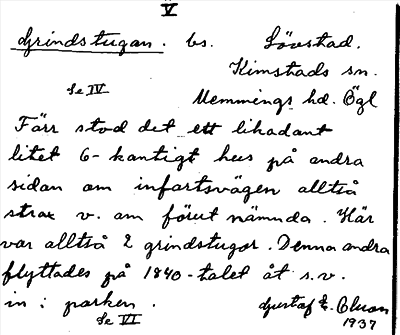 V
Grindstugan. bs. Lövstad.
Kimstads sn.
Se IV
Memmings hd. Ögl
Förr stod det ett likadant
litet 6-kantigt hus på andra
sidan om infartsvägen alltså
strax v. om förut nämnda. Här
var alltså 2 grindstugor. Denna andra
flyttades på 1840-talet åt s.v.
in i parken.
Se VI
Gustaf
1937